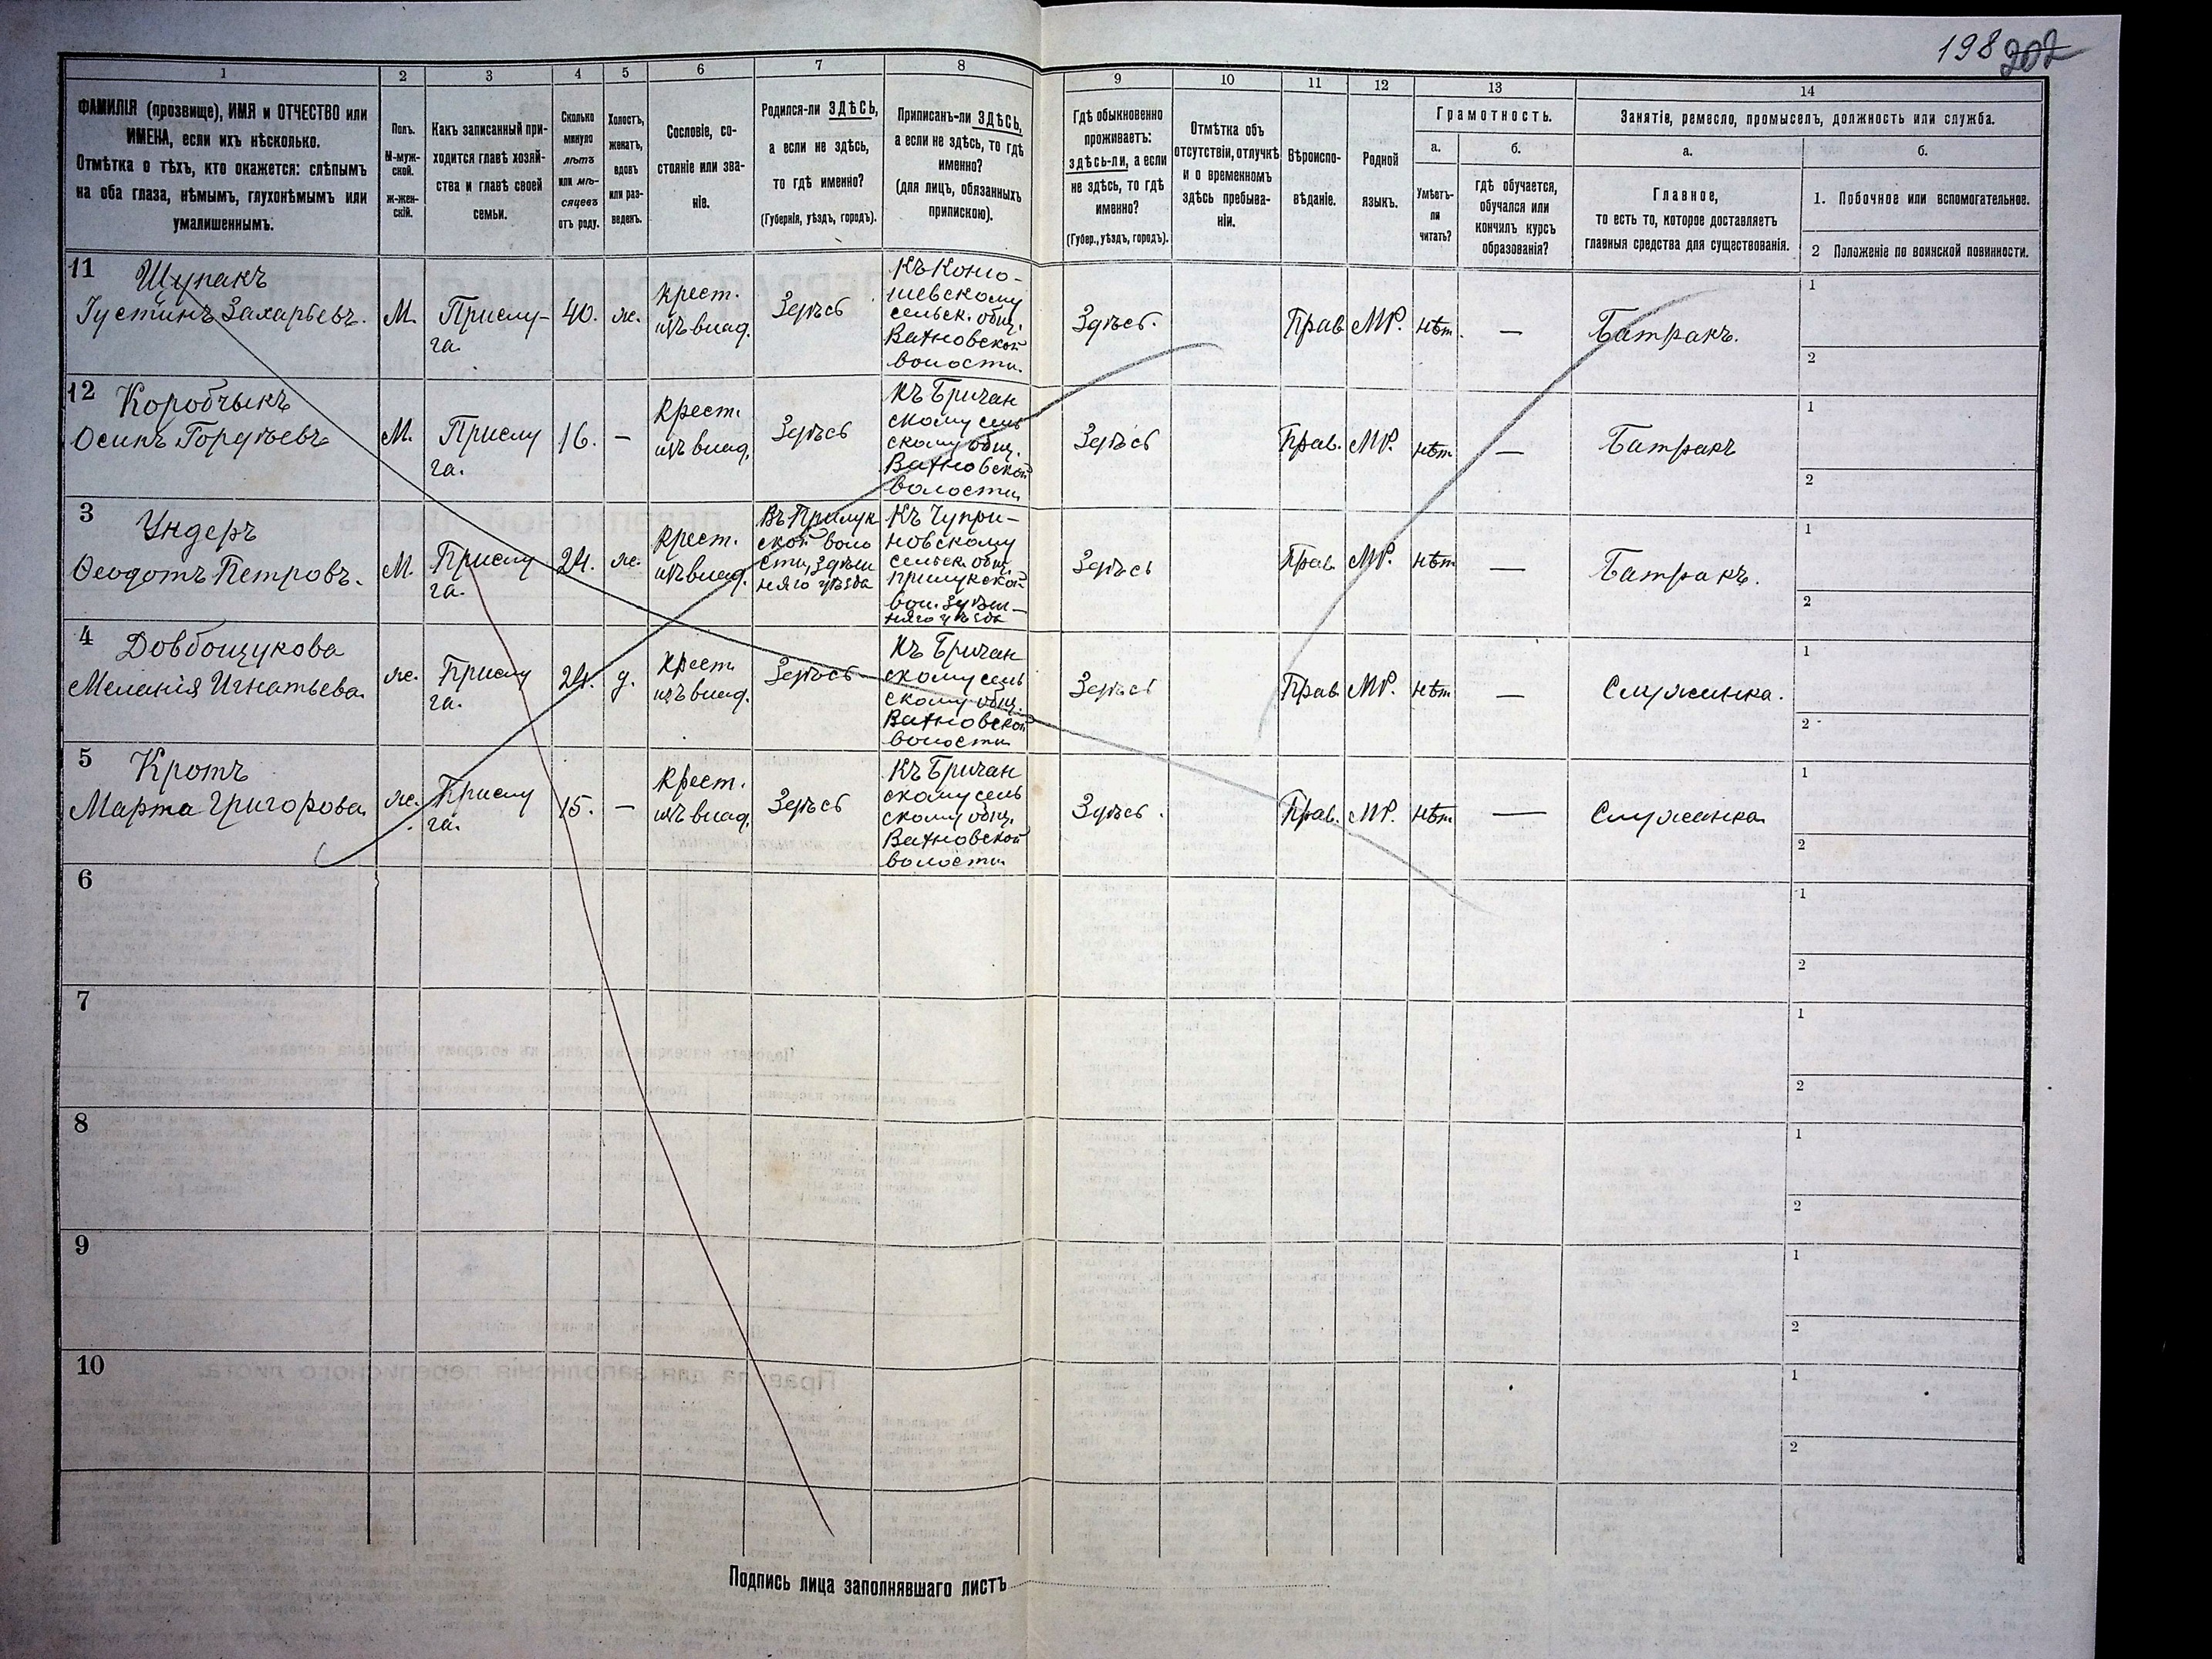 198 202
1
2
3
4
5
6
7
8
9
10
11
12
13
14
ФАМИЛІЯ (прозвище), ИМЯ и ОТЧЕСТВО или
ИМЕНА, если ихъ нѣсколько.
Отмѣтка о тѣхъ, кто окажется: слѣпымъ
на оба глаза, нѣмымъ, глухонѣмымъ или
умалишеннымъ.
Полъ.
М-муж-
ской.
Ж-жен-
скій.
Какъ записанный при-
ходится главѣ хозяй-
ства и главѣ своей
семьи.
Сколько
минуло
лѣтъ
или мѣ-
сяцевъ
отъ роду.
Холостъ,
женатъ,
вдовъ
или раз-
веденъ.
Сословіе, со-
стояніе или зва-
ніе.
Родился-ли ЗДѢСЬ,
а если не здѣсь,
то гдѣ именно?
(Губернія, уѣздъ, городъ).
Приписанъ-ли ЗДѢСЬ,
а если не здѣсь, то гдѣ
именно?
(для лицъ, обязанныхъ
припискою).
Гдѣ обыкновенно
проживаетъ:
здѣсь-ли, а если
не здѣсь, то гдѣ
именно?
(Губер., уѣздъ, городъ).
Отмѣтка объ
отсутствіи, отлучкѣ
и о временномъ
здѣсь пребыва-
ніи.
Вѣроиспо-
вѣданіе.
Родной
языкъ.
Грамотность.
а.
б.
Умѣетъ-
ли
читать?
гдѣ обучается,
обучался или
кончилъ курсъ
образованія?
Занятіе, ремесло, промыселъ, должность или служба.
а.
б.
Главное,
то есть то, которое доставляетъ
главныя средства для существованія.
1. Побочное или вспомогательное.
2 Положеніе по воинской повинности.
11 Щупакъ
Іустинъ Захарьевъ.
М.
Прислу-
га.
40.
ж.
крест.
изъ влад.
Здѣсь
Къ Коню-
шевскому
сельск. общ.
Вахновской
волости.
Здѣсь.
Прав
МР.
нѣт.
—
Батракъ.
1
2
12 Коробчыкъ
Осипъ Гордѣевъ
М.
Прислу
га.
16.
—
Крест.
изъ влад.
Здѣсь
Къ Бричан
скому сель
скому общ.
Вахновской
волости
Здѣсь
Прав.
МР.
нѣт
—
Батракъ
1
2
3 Ундеръ
Ѳеодотъ Петровъ.
М.
Прислу
га.
24.
ж.
Крест.
изъ влад.
Въ Прилук
ской воло
сти, здѣш
няго уѣзда
Къ Чупри-
новскому
сельск. общ.
Прилукской
вол. здѣш-
няго уѣзда
Здѣсь
Прав.
МР.
нѣт
—
Батракъ.
1
2
4 Довбощукова
Меланія Игнатьева.
ж.
Прислу
га.
24.
д.
Крест
изъ влад.
Здѣсь
Къ Бричан
скому сель
скому общ.
Вахновской
волости
Здѣсь
Прав
МР.
нѣт
—
Служинка.
1
2
5 Кротъ
Марта Григорова.
ж.
Прислу
га.
15.
—
Крест.
изъ влад.
Здѣсь
Къ Бричан
скому сель
скому общ.
Вахновской
волости
Здѣсь.
Прав.
МР.
нѣт
—
Служанка
1
2
6
1
2
7
1
2
8
1
2
9
1
2
10
1
2
Подпись лица заполнявшаго листъ